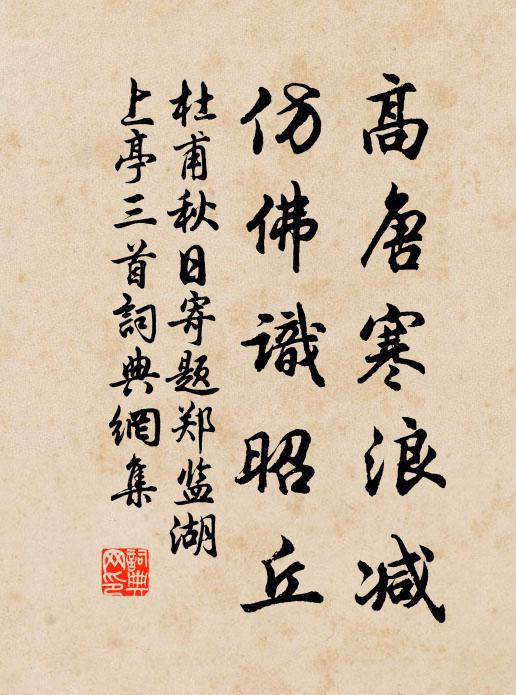 高唐寒浪减
仿佛識昭丘
杜甫秋日寄题郑监湖
上亭三首詞典網集
詞典网印